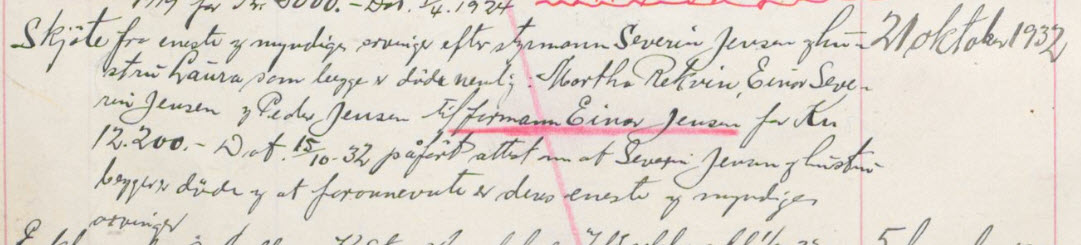 for Kr 5000.- Dat. 1/4.1924
Skjøte fra eneste og myndige arvinger efter styrmann Severin Jensen og hu- 21 oktober 1932
stru Laura som begge er døde nemlig: Martha Rekvin, Einar Seve-
rin Jensen og Peder Jensen til firmann Einar Jensen for Kr
12.200.- Dat. 15/10-32 påført attest om at Severin Jensen og hustru
begge er døde og at forannevnte er deres eneste og myndige
arvinger